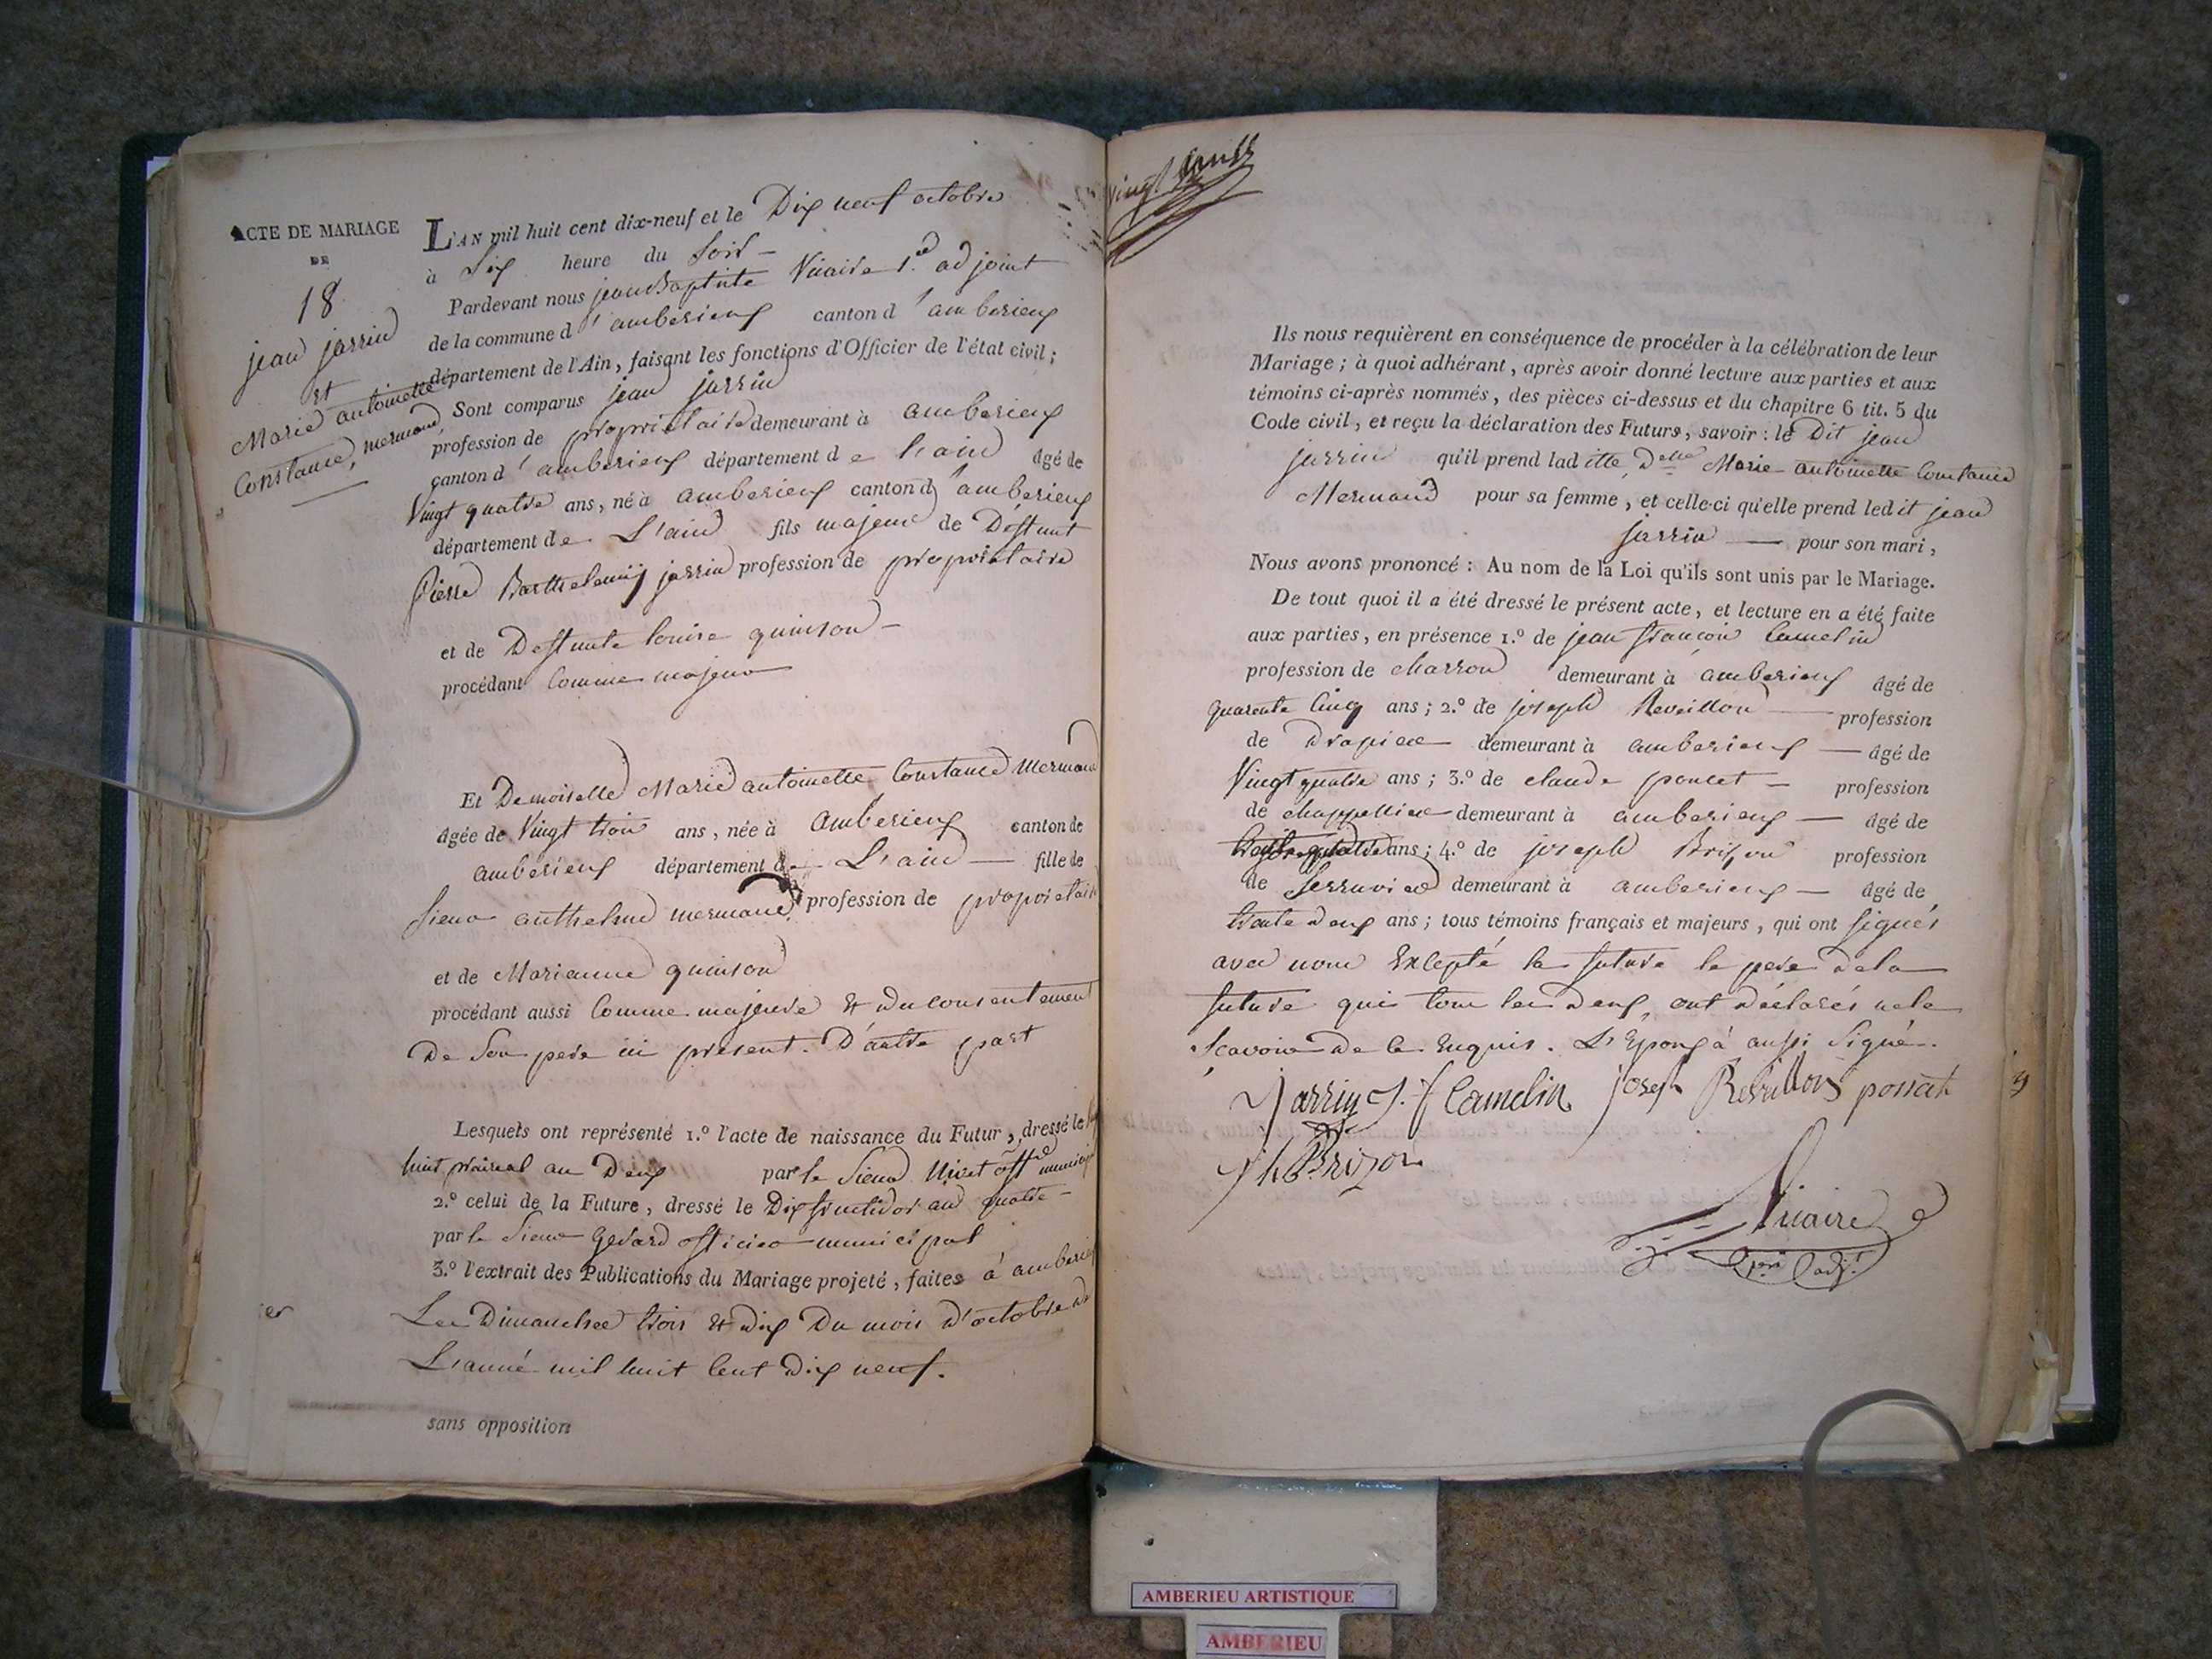 ACTE DE MARIAGE
DE
18
jean jarrin
et
Marie antoinette
Constance, mermand
L'AN mil huit cent dix-neuf et le Dix neuf octobre
à Six heure du Soir -
Pardevant nous jean Baptiste Vicaire 1.er adjoint
de la commune d'amberieux canton d'amberieux
département de l'Ain, faisant les fonctions d'Officier de l'état civil;
Sont comparus jean jarrin
profession de propriétaire demeurant à amberieux
canton d'amberieux département de l'ain âgé de
Vingt quatre ans, né à amberieux canton d'amberieux
département de L'ain fils majeur de Deffunt
Pierre Barthelemij jarrin profession de propriétaire
et de Deffunte louise quinson -
procédant Comme majeur
Et Demoiselle Marie antoinette Constance Mermand
âgée de Vingt trois ans, née à Amberieux canton de
amberieux département de L'ain — fille de
Sieur anthelme mermand profession de propriétaire
et de Marianne quinson
procédant aussi Comme majeure et du consentement
De Son pere ici present. D'autre part
Lesquels ont représenté 1.º l'acte de naissance du Futur, dressé le
huit prairial an Deux par le Sieur Nivet off.er municipal
2.º celui de la Future, dressé le Dix fructidor an quatre -
par le Sieur Gerard officier municipal
3.º l'extrait des Publications du Mariage projeté, faites à amberieux
Les Dimanches trois et dix Du mois d'octobre de
L'anné mil huit Cent Dix neuf.
sans opposition
Vingt
Ils nous requièrent en conséquence de procéder à la célébration de leur
Mariage; à quoi adhérant, après avoir donné lecture aux parties et aux
témoins ci-après nommés, des pièces ci-dessus et du chapitre 6 tit. 5 du
Code civil, et reçu la déclaration des Futurs, savoir: le Dit jean
jarrin qu'il prend laditte, Delle Marie antoinette Constance
Mermand pour sa femme, et celle-ci qu'elle prend ledit jean
jarrin — pour son mari,
Nous avons prononcé: Au nom de la Loi qu'ils sont unis par le Mariage.
De tout quoi il a été dressé le présent acte, et lecture en a été faite
aux parties, en présence 1.º de jean françois Camelin
profession de charron demeurant à amberieux âgé de
quarente Cinq ans; 2.º de joseph Reveillon — profession
de drapier demeurant à amberieux — âgé de
Vingt quatre ans; 3.º de claude poncet — profession
de chappellier demeurant à amberieux — âgé de
ans; 4.º de joseph Brison profession
de Serrurier demeurant à amberieux — âgé de
trente deux ans; tous témoins français et majeurs, qui ont signés
avec nous Excepté la future le pere de la
future qui tous les deux, ont déclarés ne le
Scavoir de ce Enquis. L'Epoux à aussi Signé.
Jarrin J. f Camelin joseph Reveillon
jh Brizon
Vicaire
adj.t
AMBERIEU ARTISTIQUE
AMBERIEU